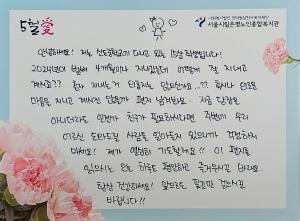 5월愛
서울시립은평노인종합복지관
안녕하세요! 저는 신도중학교에 다니고 있는 15살 학생입니다!
2024년이 벌써 4개월이나 지나갔는데 어떻게 잘 지내고
계시죠?? 혹시 지내는거 힘들지는 않으신가요...?? 혹시나 힘든
마음을 지니고 계시진 않을까 편지 남겨봐요. 지금 당장은
아니더라도 언젠가 친구가 필요하시다면 주변에 우리
어르신 도와드릴 사람들 많이 있으니 걱정하지
마세요! 제가 열심히 기도할게요!! 이 편지를
읽으시는 오늘 하루도 편안하고 즐거우시길 바라요.
항상 건강하세요! 앞으로도 꽃길만 걸으시길
바랍니다!!